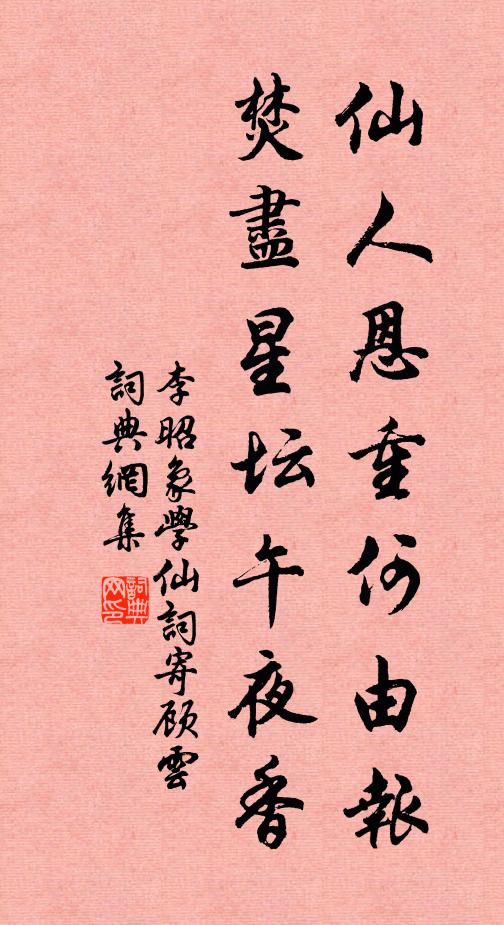 仙人恩重何由報
焚盡星坛午夜香
李昭象學仙詞寄顾雲
詞典網集
詞典網印